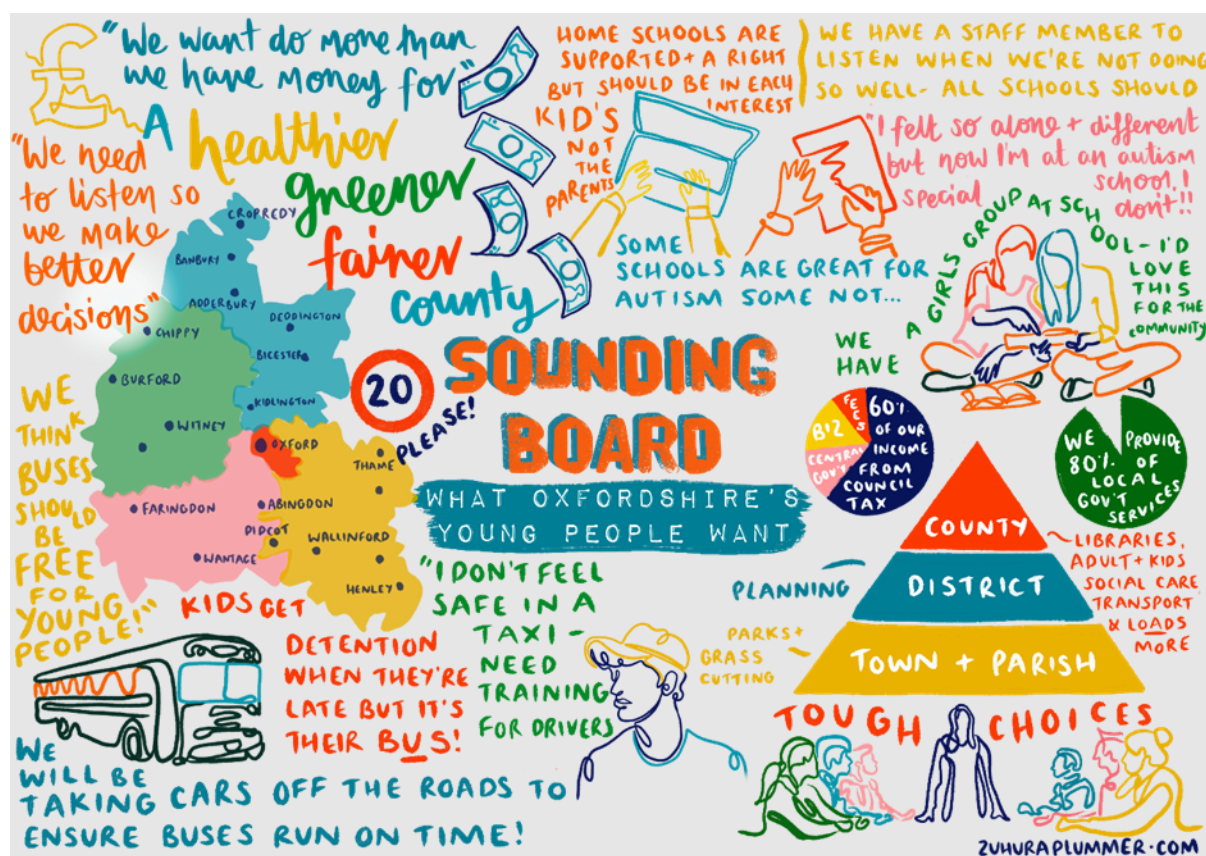 £
"We want do more than
we have money for"
A
healthier
greener
fairer
county
"We need
to listen so
we make
better
decisions"
HOME SCHOOLS ARE
SUPPORTED + A RIGHT
BUT SHOULD BE IN EACH
INTEREST
KID'S
NOT
THE
PARENTS
WE HAVE A STAFF MEMBER TO
LISTEN WHEN WE'RE NOT DOING
SO WELL- ALL SCHOOLS SHOULD
"I felt so alone + different
but now I'm at an autism
special school, I
don't!!
SOME
SCHOOLS ARE GREAT FOR
AUTISM SOME NOT...
WE
HAVE
A GIRLS GROUP AT SCHOOL - I'D
LOVE
THIS
FOR THE
COMMUNITY
CROPREDY
BANBURY
ADDERBURY
DEDDINGTON
CHIPPY
BICESTER
BURFORD
KIDLINGTON
WITNEY
OXFORD
THAME
FARINGDON
ABINGDON
DIDCOT
WALLINFORD
WANTAGE
HENLEY
20
PLEASE!
SOUNDING
BOARD
WHAT OXFORDSHIRE'S
YOUNG PEOPLE WANT
WE
THINK
BUSES
SHOULD
BE
FREE
FOR
YOUNG
PEOPLE!"
KIDS GET
DETENTION
WHEN THEY'RE
LATE BUT IT'S
THEIR BUS!
"I DON'T FEEL
SAFE IN A
TAXI -
NEED
TRAINING
FOR DRIVERS
WE
WILL BE
TAKING CARS OFF THE ROADS TO
ENSURE BUSES RUN ON TIME!
FEES
BIZ
CENTRAL
GOV'T
60%
OF OUR
INCOME
FROM
COUNCIL
TAX
WE PROVIDE
80% OF
LOCAL
GOV'T
SERVICES
COUNTY
DISTRICT
TOWN + PARISH
LIBRARIES,
ADULT + KIDS
SOCIAL CARE
TRANSPORT
& LOADS
MORE
PLANNING
PARKS +
GRASS
CUTTING
TOUGH CHOICES
ZUHURAPLUMMER.COM